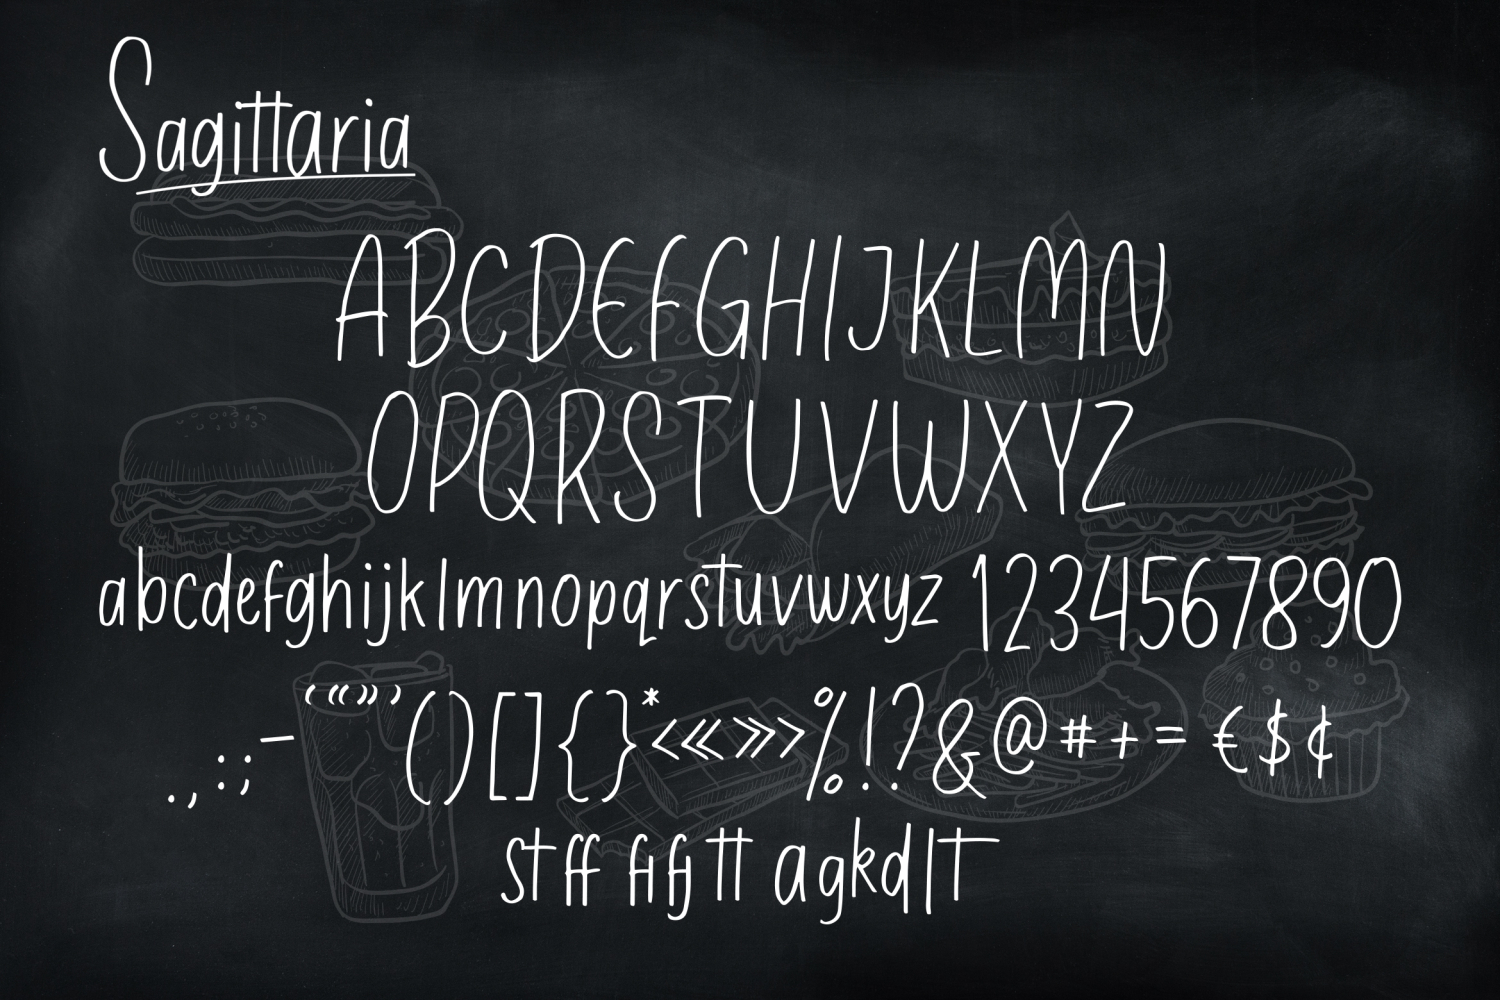 Sagittaria
ABCDEFGHIJKLMN
OPQRSTUVWXYZ
abcdefghijklmnopqrstuvwxyz 1234567890
.,:;- ‘“”’()[]{}*‹«»›%!?&@#+= €$¢
st ff fi fj tt agkdlt